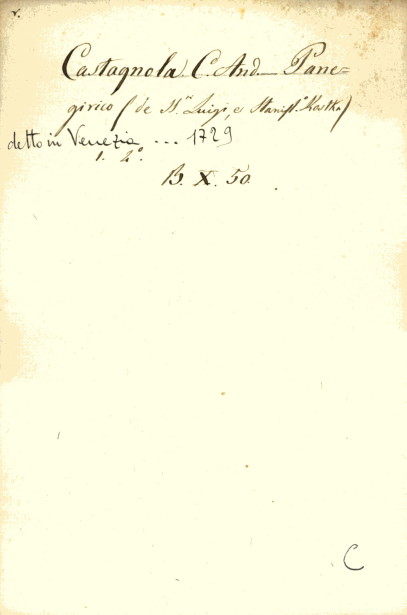 v.
Castagnola C. And. Pane=
girico (de Sti. Luigi, e Stanisl. Kostka)
detto in Venezia ... 1729
1. 4°.
B. X. 50.
C